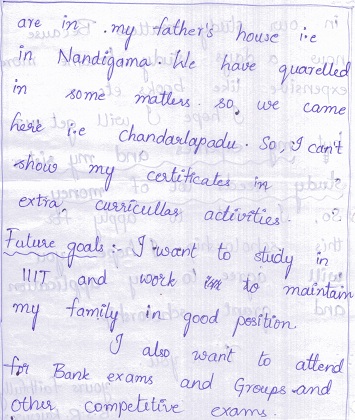 are in my father's house i.e
in Nandigama. We have quarelled
in some matters. so, we came
here i.e chandarlapadu. So, I can't
show my certificates in
extra curricullar activities.
Future goals :- I want to study in
IIIT and work to maintain
my family in good position.
I also want to attend
for Bank exams and Groups and
other competitive exams.